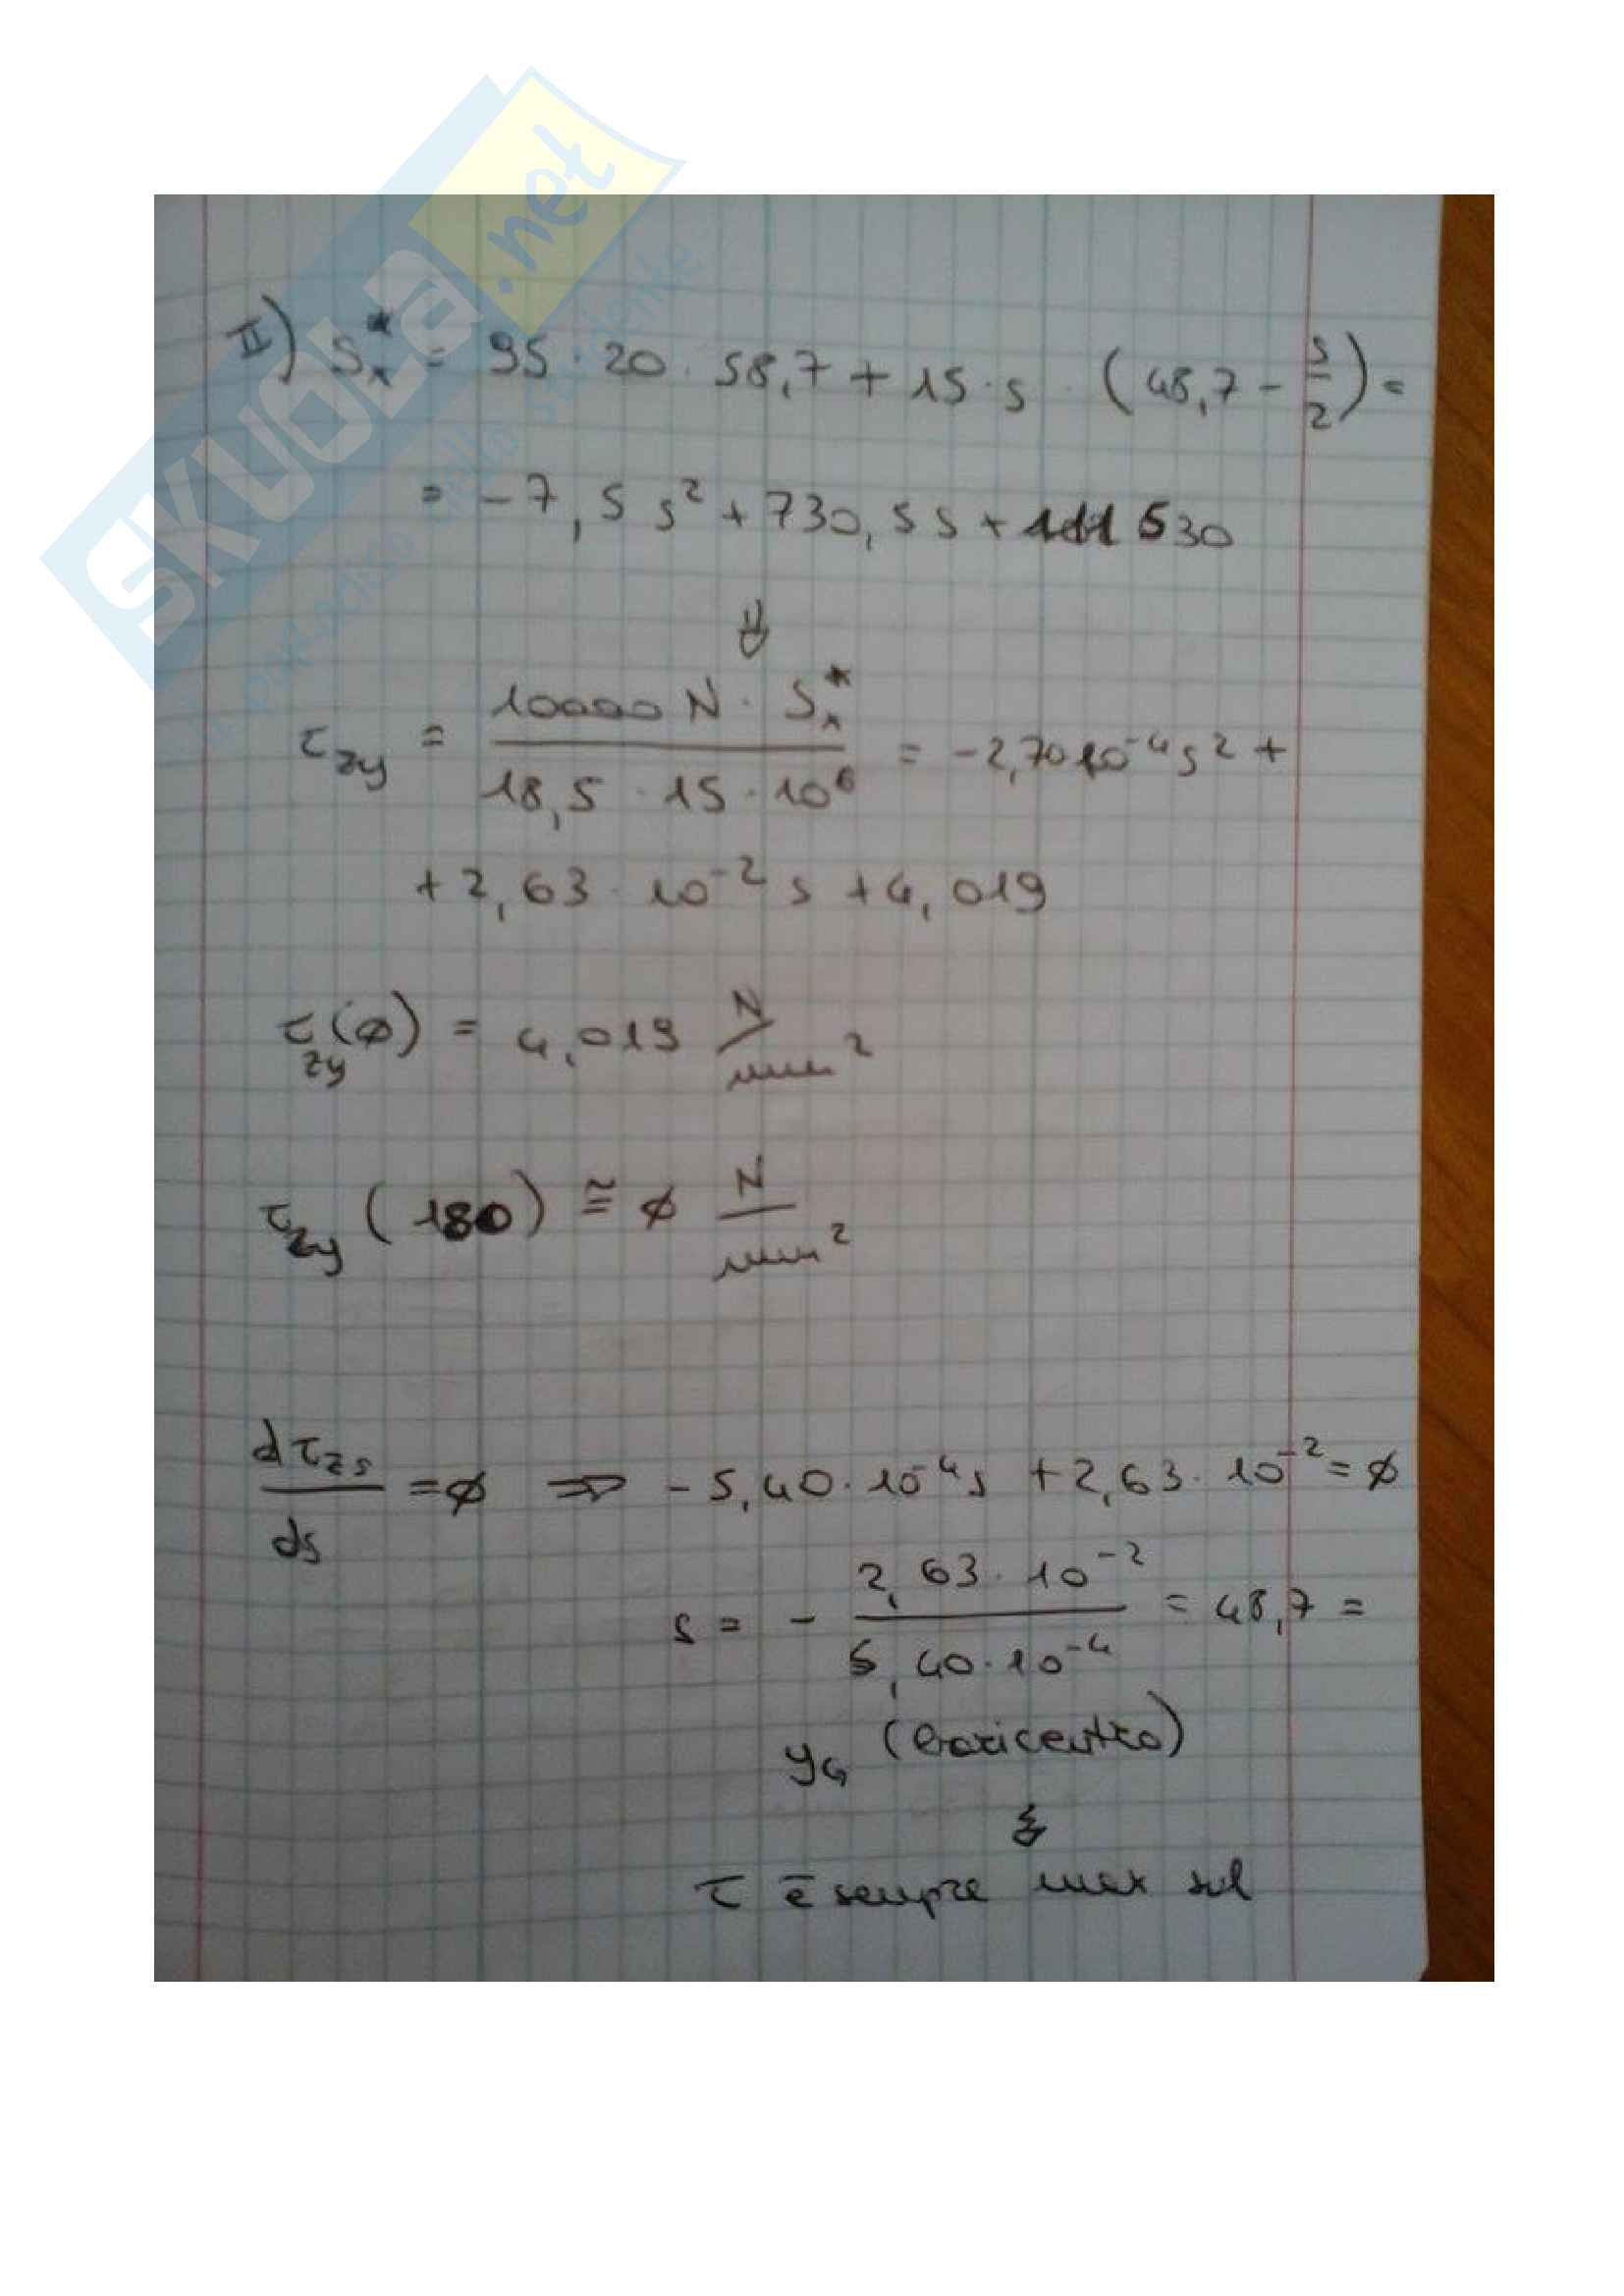 SKUOLA.net
II) Sx* = 95 · 20 · 58,7 + 15 · s · (48,7 - s/2) =
= -7,5 s² + 730,5 s + 111 530
⇓
τzy = 10000 N · Sx* / 18,5 · 15 · 10⁶ = -2,70 10⁻⁴ s² +
+ 2,63 · 10⁻² s + 4,019
τzy(ø) = 4,019 N/mm²
τzy (180) ≅ ø N/mm²
dτzs/ds = ø ⇒ -5,40 · 10⁻⁴ s + 2,63 · 10⁻² = ø
s = - 2,63 · 10⁻² / 5,40 · 10⁻⁴ = 48,7 =
yG (baricentro)
⇓
τ è sempre max sul